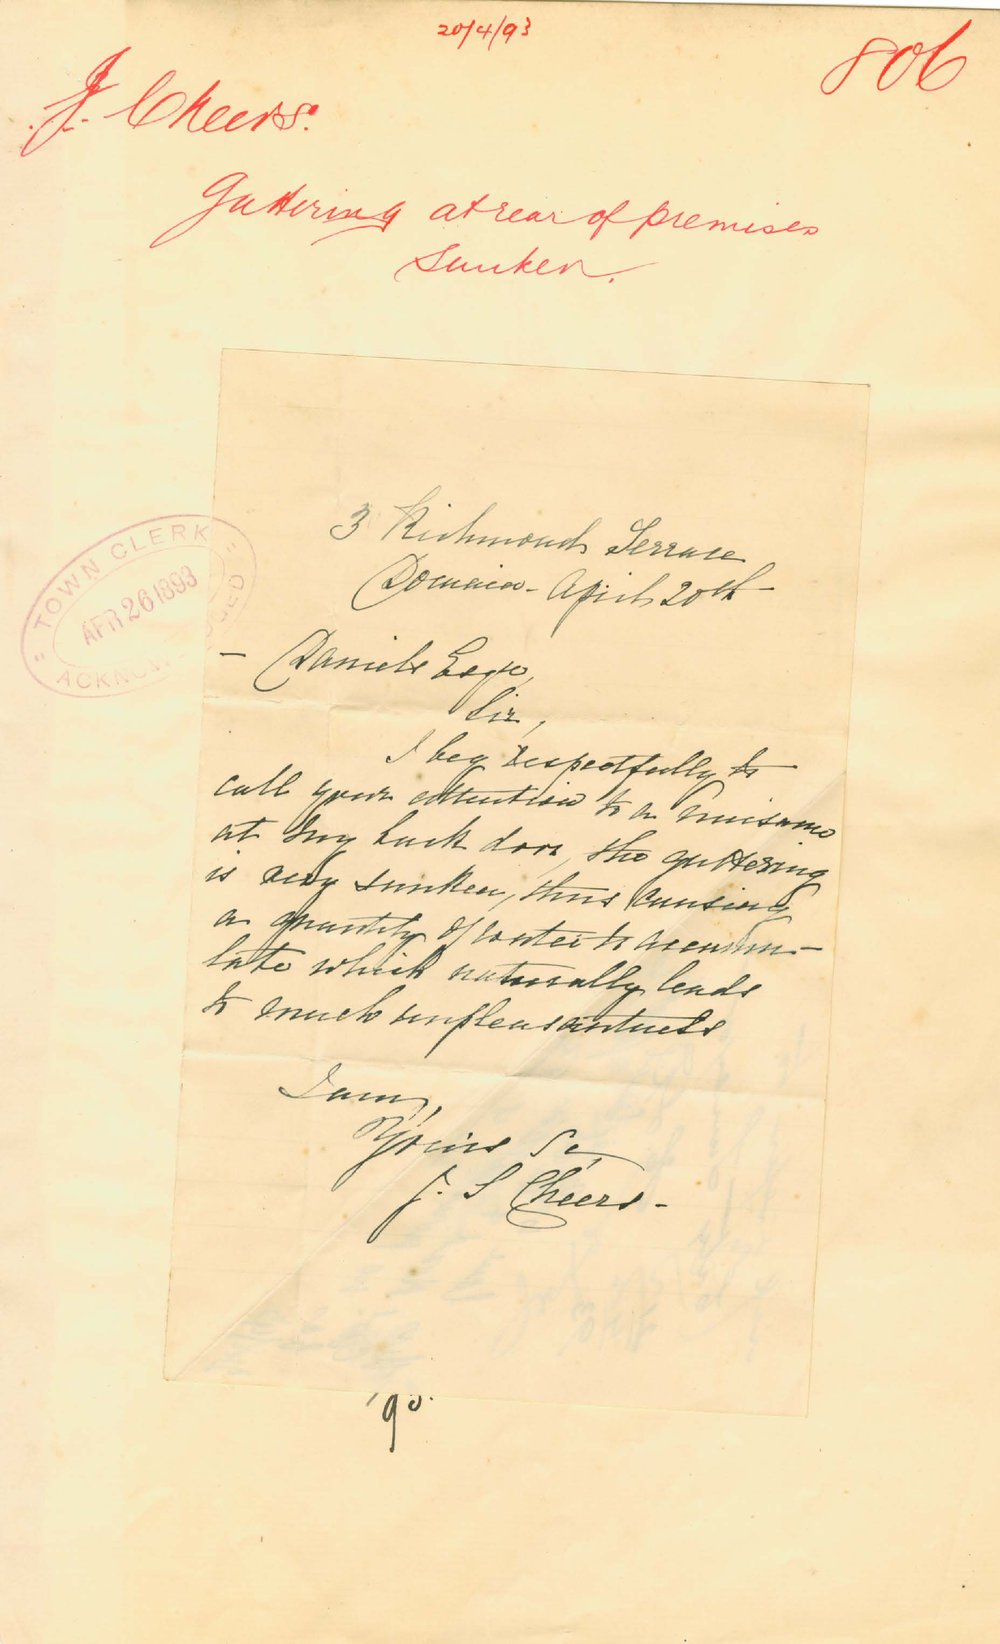 20/4/93
806
J. Cheers.
Guttering at rear of premises
Sunken.
TOWN CLERK
APR 26 1893
3 Richmond Terrace
Domain - April 20th
- Daniels Esqre,
Sir,
I beg respectfully to
call your attention to a nuisance
at my back door, the guttering
is very sunken, thus causing
a quantity of water to accumu-
late which naturally leads
to much unpleasantness
I am,
Yours &c,
J. S Cheers -